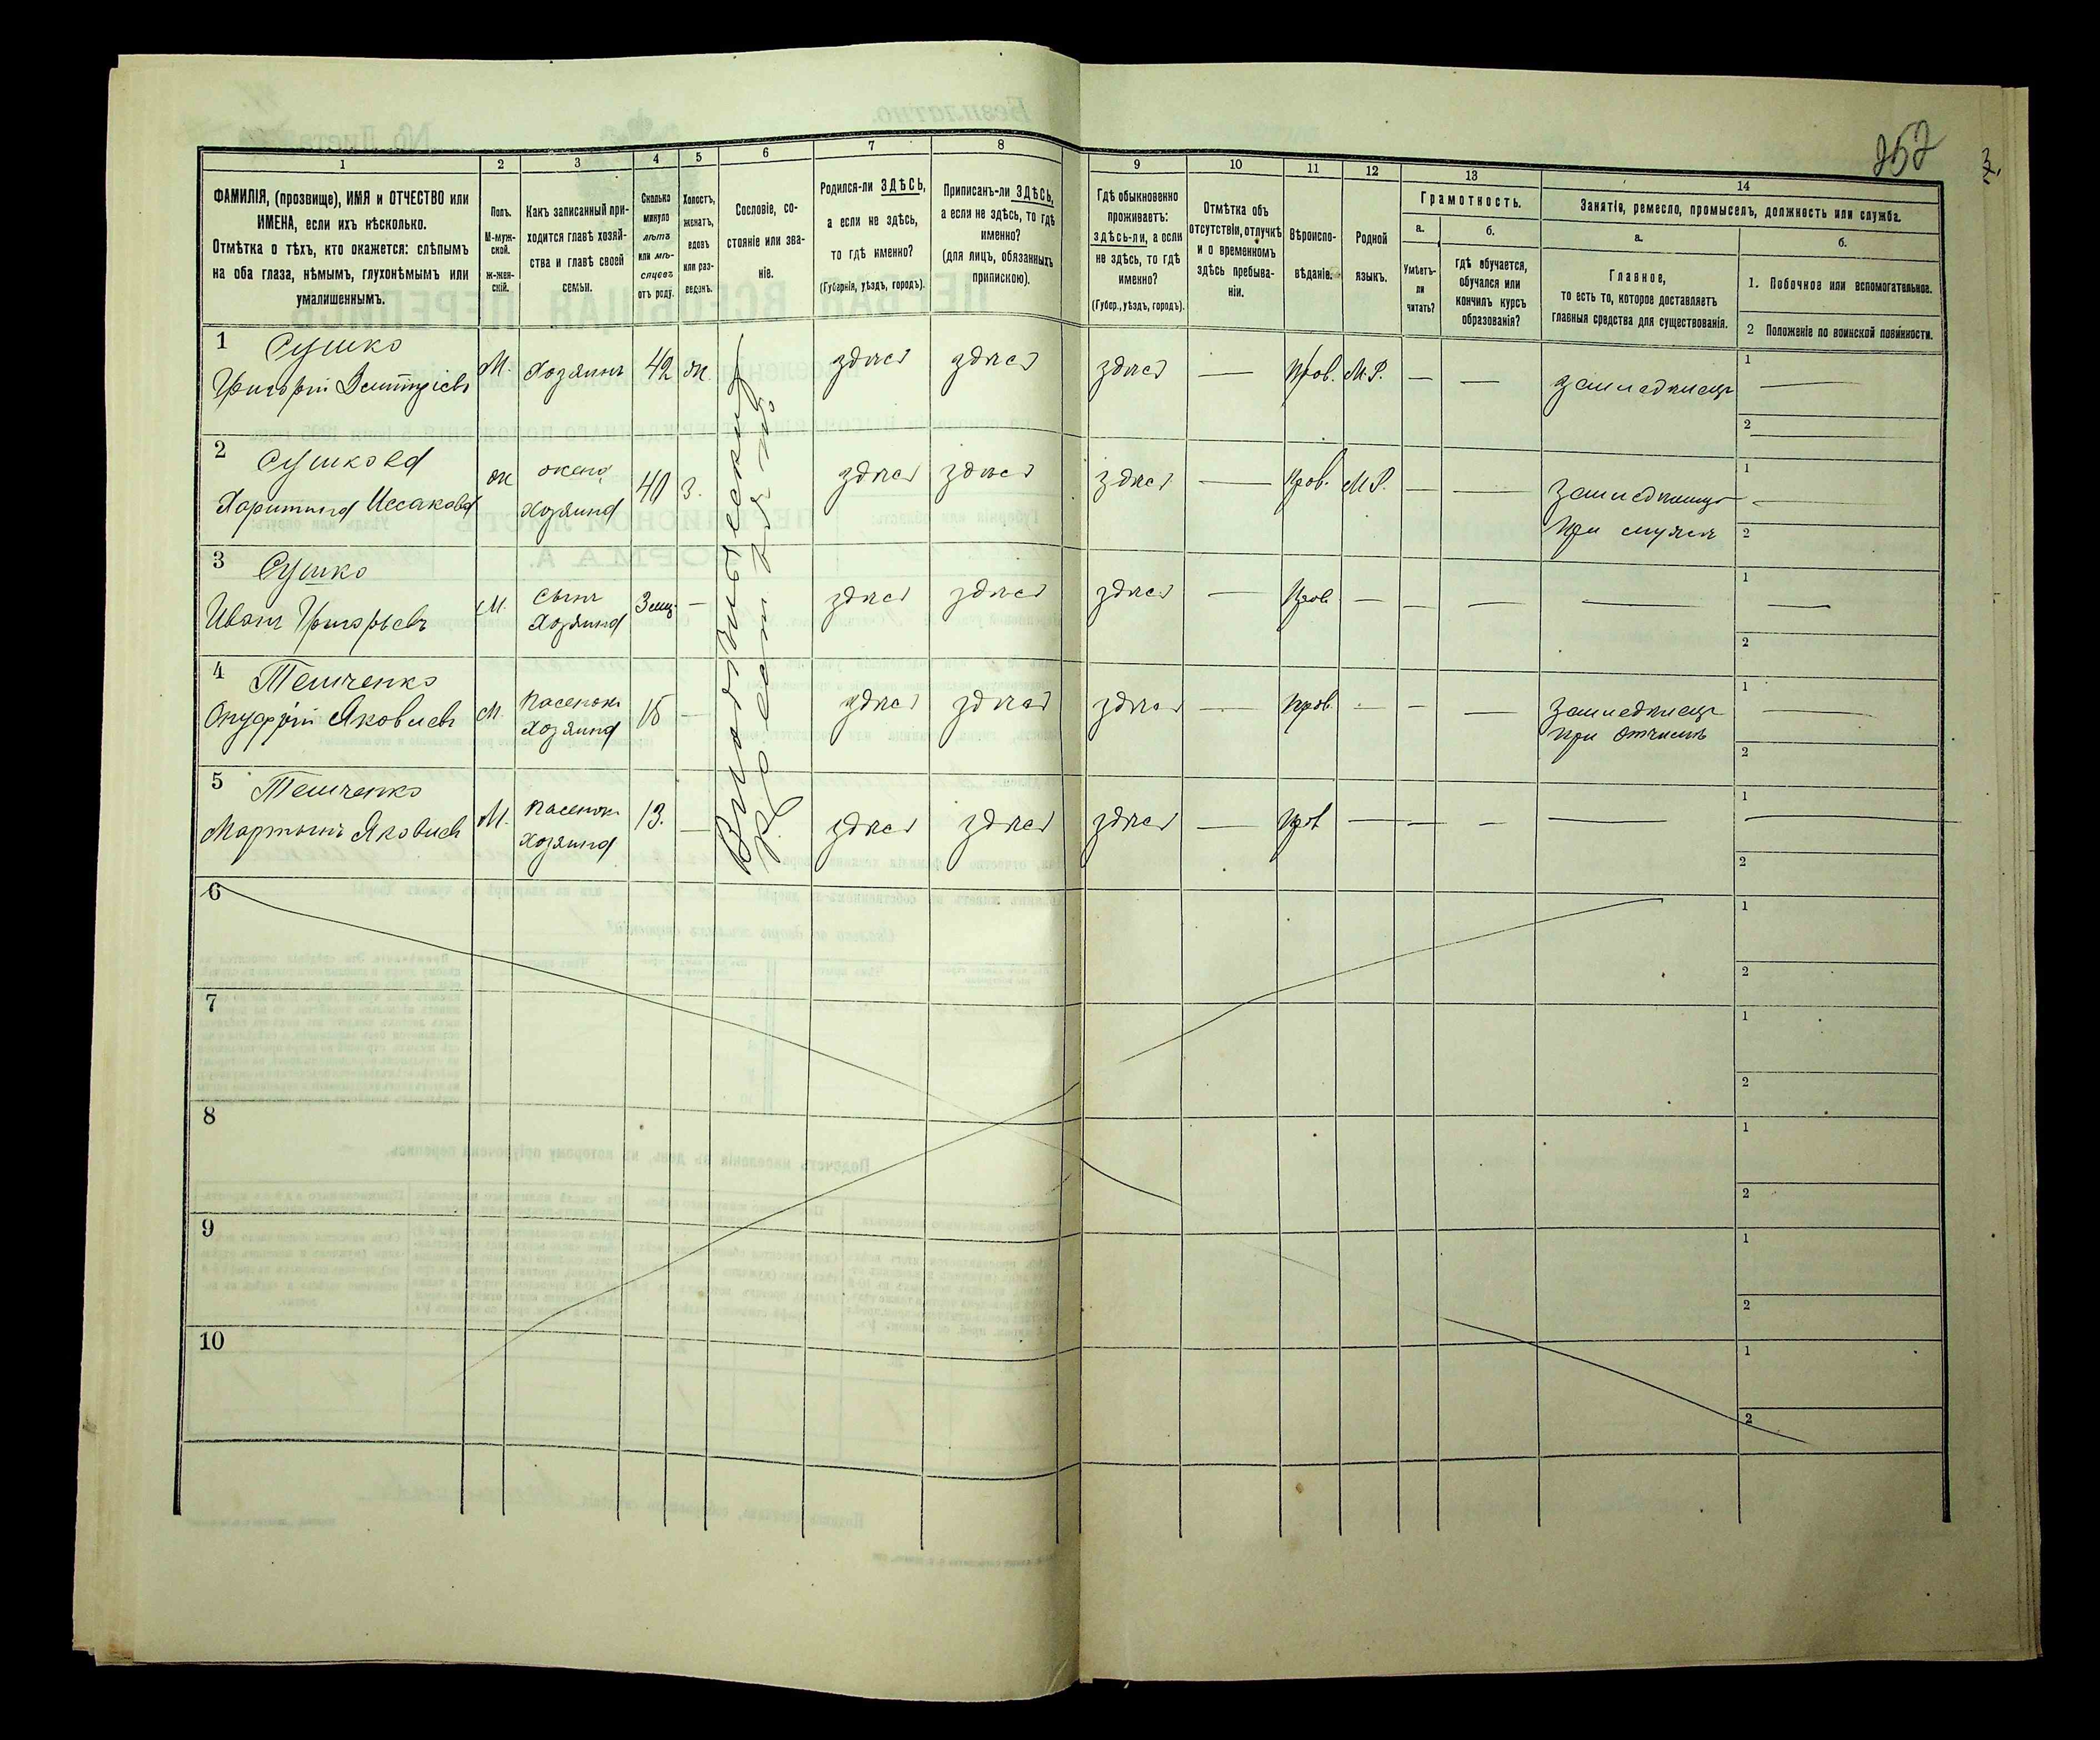 252
1
2
3
4
5
6
7
8
9
10
11
12
13
14
ФАМИЛІЯ, (прозвище), ИМЯ и ОТЧЕСТВО или
ИМЕНА, если ихъ нѣсколько.
Отмѣтка о тѣхъ, кто окажется: слѣпымъ
на оба глаза, нѣмымъ, глухонѣмымъ или
умалишеннымъ.
Полъ.
М-муж-
ской.
ж-жен-
скій.
Какъ записанный при-
ходится главѣ хозяй-
ства и главѣ своей
семьи.
Сколько
минуло
лѣтъ
или мѣ-
сяцевъ
отъ роду.
Холостъ,
женатъ,
вдовъ
или раз-
веденъ.
Сословіе, со-
стояніе или зва-
ніе.
Родился-ли ЗДѢСЬ,
а если не здѣсь,
то гдѣ именно?
(Губернія, уѣздъ, городъ).
Приписанъ-ли ЗДѢСЬ,
а если не здѣсь, то гдѣ
именно?
(для лицъ, обязанныхъ
припискою).
Гдѣ обыкновенно
проживаетъ:
здѣсь-ли, а если
не здѣсь, то гдѣ
именно?
(Губер., уѣздъ, городъ).
Отмѣтка объ
отсутствіи, отлучкѣ
и о временномъ
здѣсь пребыва-
ніи.
Вѣроиспо-
вѣданіе.
Родной
языкъ.
Грамотность.
а.
Умѣетъ-
ли
читать?
б.
гдѣ обучается,
обучался или
кончилъ курсъ
образованія?
Занятіе, ремесло, промыселъ, должность или служба.
а.
Главное,
то есть то, которое доставляетъ
главныя средства для существованія.
б.
1. Побочное или вспомогательное.
2 Положеніе по воинской повинности.
1 Сушко
Григорій Дмитріевъ
М. Хозяинъ 42 ж. здѣсь здѣсь здѣсь — Прав. М.Р. — — земледѣлецъ
1 —
2 —
2 Сушкова
Харитина Исакова
ж жена
хозяина
40 з. здѣсь здѣсь здѣсь — прав. М.Р. — — земледѣлица
при мужѣ
1 —
2
3 Сушко
Иванъ Григорьевъ
М. сынъ
хозяина
3 мц. — здѣсь здѣсь здѣсь — прав — — — —
1 —
2
4 Темченко
Онуфрій Яковлевъ
М. пасенокъ
хозяина
15 — здѣсь здѣсь здѣсь — прав. — — — земледѣлецъ
при отчимѣ
1 —
2
5 Темченко
Мартынъ Яковлевъ
М. пасенокъ
хозяина
13. — здѣсь здѣсь здѣсь — прав — — — —
1 —
2
6
1
2
7
1
2
8
1
2
9
1
2
10
1
2